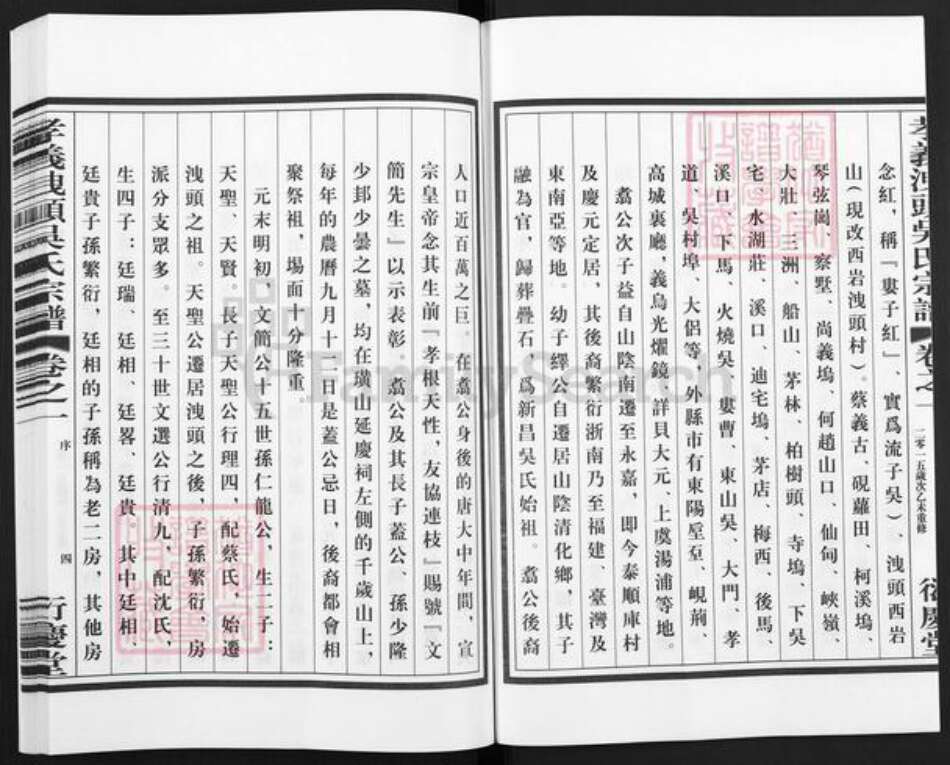 孝義洩頭吳氏宗譜 卷之一
二零一五歲次乙未重修
衍慶堂
念紅，稱『婁子紅』、實爲流子吳）、洩頭西岩
山（現改西岩洩頭村）。蔡義古、硯蘿田、柯溪塢、
琴弦崗、察墅、尚義塢、何趙山口、仙甸、峽嶺、
大壯、三洲、船山、茅林、柏樹頭、寺塢、下吳
宅、水湖莊、溪口、迪宅塢、茅店、梅西、後馬、
溪口、下馬、火燒吳、婁曹、東山吳、大門、孝
道、吳村埠、大侶等。外縣市有東陽垕亙、峴荊、
高城裏廳，義烏光燿鏡、詳貝大元、上虞湯浦等地。
翥公次子益自山陰南遷至永嘉，即今泰順庫村
及慶元定居，其後裔繁衍浙南乃至福建、臺灣及
東南亞等地。幼子繹公自遷居山陰清化鄉，其子
融為官，歸葬疊石，爲新昌吳氏始祖。翥公後裔
人口近百萬之巨。在翥公身後的唐大中年間，宣
宗皇帝念其生前『孝根天性，友協連枝』賜號『文
簡先生』以示表彰。翥公及其長子蓋公、孫少隆
少邽少曇之墓，均在璜山延慶祠左側的千歲山上，
每年的農曆九月十二日是蓋公忌日，後裔都會相
聚祭祖，場面十分隆重。
元末明初，文簡公十五世孫仁龍公，生二子：
天聖、天賢。長子天聖公行理四，配蔡氏，始遷
洩頭之祖。天聖公遷居洩頭之後，子孫繁衍，房
派分支眾多。至三十世文選公行清九，配沈氏，
生四子：廷瑞、廷相、廷畧、廷貴。其中廷相、
廷貴子孫繁衍，廷相的子孫稱為老二房，其他房
孝義洩頭吳氏宗譜 卷之一
序
四
衍慶堂
FamilySearch